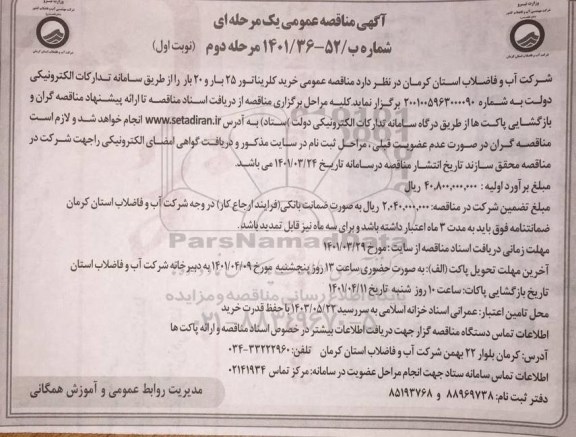 آگهی مناقصه عمومی یک مرحله ای
شماره ب/۵۲-۱۴۰۱/۳۶ مرحله دوم (نوبت اول)
شرکت آب و فاضلاب استان کرمان در نظر دارد مناقصه عمومی خرید کلریناتور ۲۵ بار و ۲۰ بار را از طریق سامانه تدارکات الکترونیکی
دولت به شماره ۲۰۰۱۰۰۵۹۶۳۰۰۰۰۹۰ برگزار نماید کلیه مراحل برگزاری مناقصه از دریافت اسناد مناقصه تا ارائه پیشنهاد مناقصه گران و
بازگشایی پاکت ها از طریق درگاه سامانه تدارکات الکترونیکی دولت (ستاد) به آدرس www.setadiran.ir انجام خواهد شد و لازم است
مناقصه گران در صورت عدم عضویت قبلی، مراحل ثبت نام در سایت مذکور و دریافت گواهی امضای الکترونیکی را جهت شرکت در
مناقصه محقق سازند تاریخ انتشار مناقصه در سامانه تاریخ ۱۴۰۱/۰۳/۲۴ می باشد.
مبلغ برآورد اولیه: ۴۰,۸۰۰,۰۰۰,۰۰۰ ریال
مبلغ تضمین شرکت در مناقصه: ۲.۰۴۰,۰۰۰,۰۰۰ ریال به صورت ضمانت بانکی(فرایند ارجاع کار) در وجه شرکت آب و فاضلاب استان کرمان
ضمانتنامه فوق باید به مدت ۳ ماه اعتبار داشته باشد و برای سه ماه نیز قابل تمدید باشد.
مهلت زمانی دریافت اسناد مناقصه از سایت: مورخ ۱۴۰۱/۰۳/۲۹
آخرین مهلت تحویل پاکت (الف): به صورت حضوری ساعت ۱۳ روز پنجشنبه مورخ ۱۴۰۱/۰۴/۰۹ به دبیرخانه شرکت آب و فاضلاب استان
تاریخ بازگشایی پاکات: ساعت ۱۰ روز شنبه تاریخ ۱۴۰۱/۰۴/۱۱
محل تامین اعتبار: عمرانی اسناد خزانه اسلامی به سررسید ۱۴۰۳/۰۵/۲۲ با حفظ قدرت خرید
اطلاعات تماس دستگاه مناقصه گزار جهت دریافت اطلاعات بیشتر در خصوص اسناد مناقصه و ارائه پاکت ها
آدرس: کرمان بلوار ۲۲ بهمن شرکت آب و فاضلاب استان کرمان تلفن: ۳۳۲۲۲۹۶۰-۰۳۴
اطلاعات تماس سامانه ستاد جهت انجام مراحل عضویت در سامانه: مرکز تماس ۰۲۱۴۱۹۳۴
دفتر ثبت نام: ۸۸۹۶۹۷۳۸ و ۸۵۱۹۳۷۶۸
مدیریت روابط عمومی و آموزش همگانی
ParsNamadData